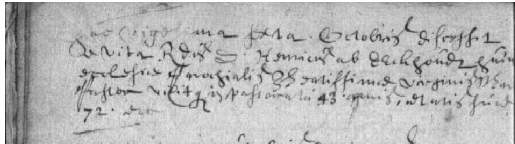 vigesima sexta Octobris discessit
e vita Rdus D. Henricus ab Eeckhoudt huius
ecclesiae parochialis Beatissimae virginis
pastor vixitq in pastoratu 43 annis, aetatis suae
72.